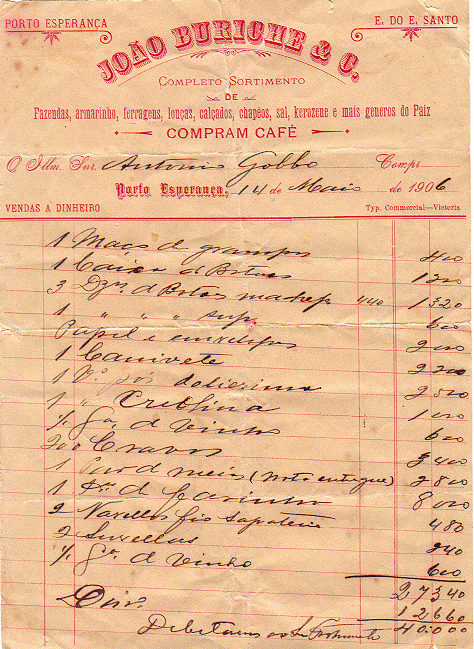 PORTO ESPERANÇA
E. DO E. SANTO
JOÃO BURICHE & C.
COMPLETO SORTIMENTO
DE
Fazendas, armarinho, ferragens, louças, calçados, chapéos, sal, kerozene e mais generos do Paiz
COMPRAM CAFÉ
O Illm. Snr. Antonio Gobbo Compr
Porto Esperança, 14 de Maio de 1906
VENDAS A DINHEIRO
Typ. Commercial—Victoria
1 Maço de grampos 400
1 Caixa d Botões 1200
3 Dzs. d Botões madrep 440 1320
1 " " " sup. 600
Papel e envelopes 200
1 Canivete 2200
1 Vº. pós 2500
1 " Creolina 1000
½ Gª. d Vinho 600
200 Cravos 2400
1 Par d meias 2800
1 d farinha 8000
2 Novellos fio sapateiro 480
2 240
½ Gª. d Vinho 600
27340
Dinº. 12660
Debitamos ao Sr. 40:000